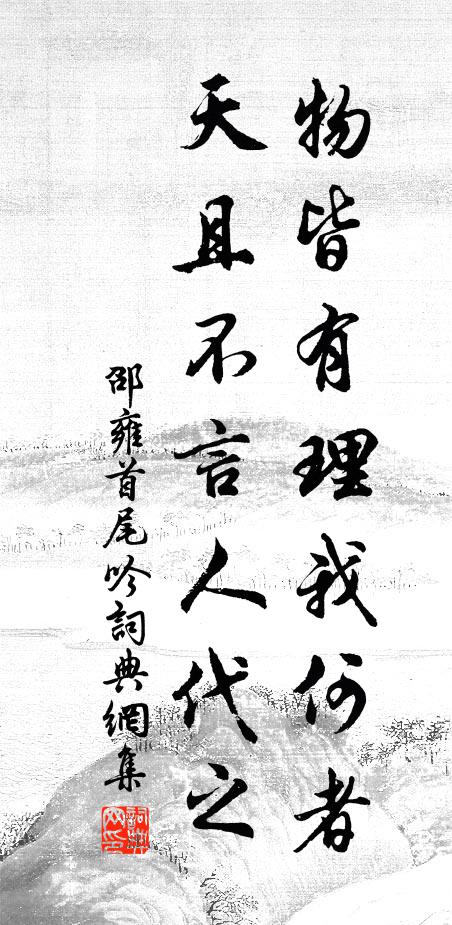 物皆有理我何者
天且不言人代之
邵雍首尾吟詞典網集